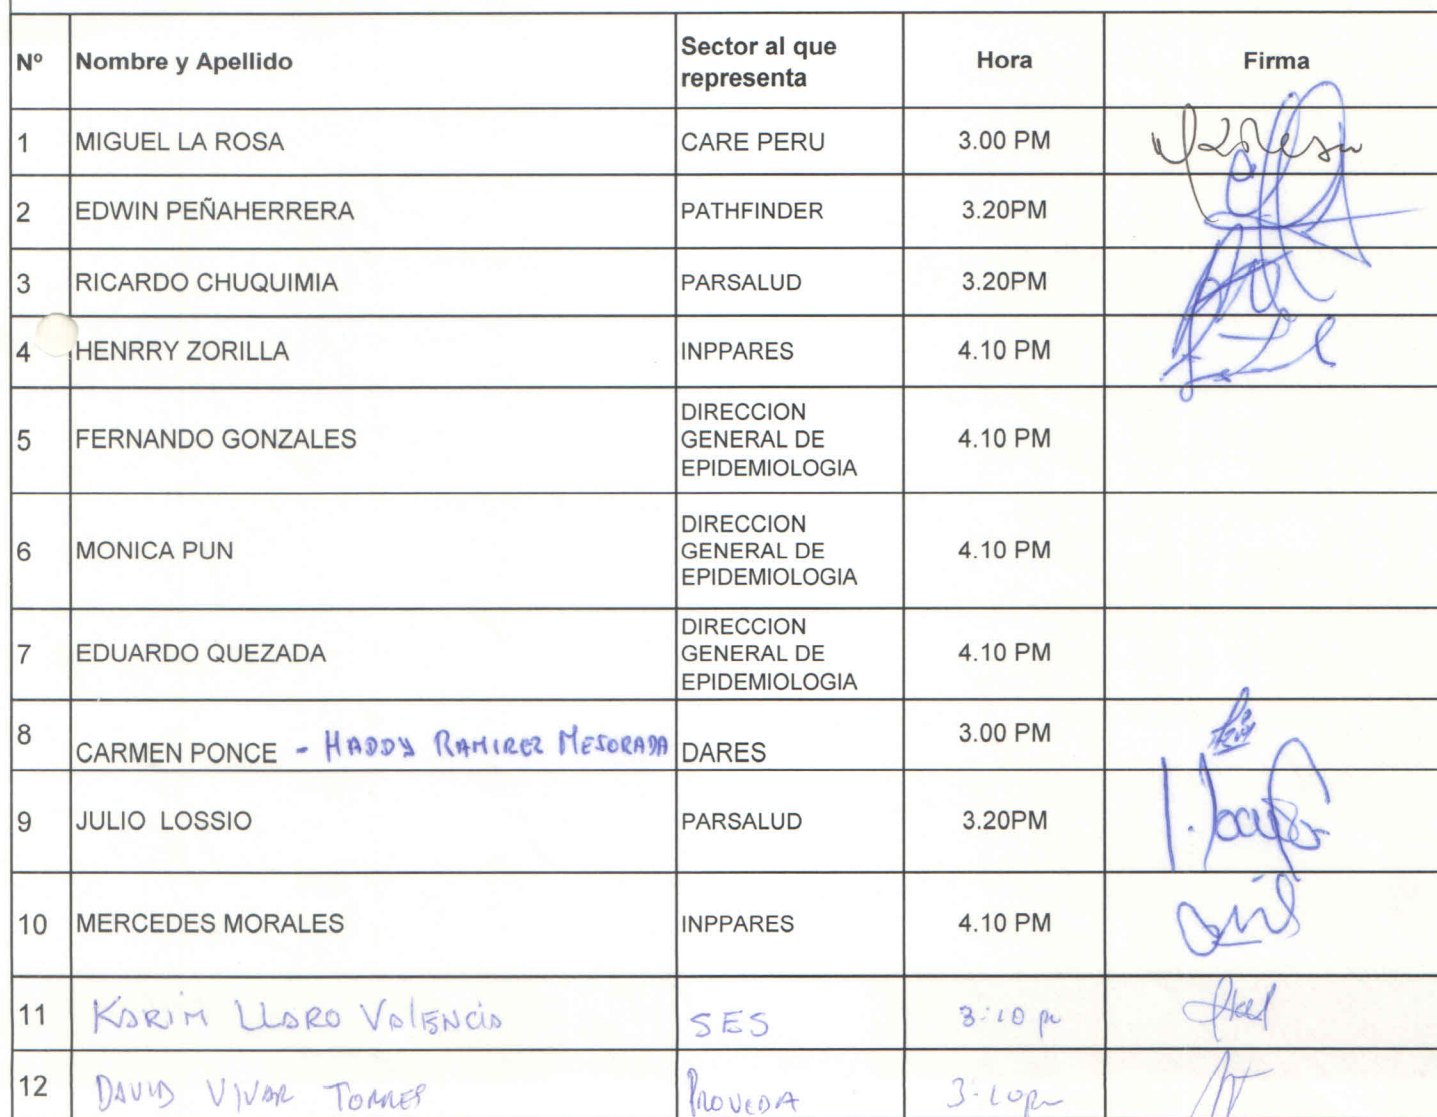 Nº Nombre y Apellido Sector al que representa Hora Firma
1 MIGUEL LA ROSA CARE PERU 3.00 PM
2 EDWIN PEÑAHERRERA PATHFINDER 3.20PM
3 RICARDO CHUQUIMIA PARSALUD 3.20PM
4 HENRRY ZORILLA INPPARES 4.10 PM
5 FERNANDO GONZALES DIRECCION GENERAL DE EPIDEMIOLOGIA 4.10 PM
6 MONICA PUN DIRECCION GENERAL DE EPIDEMIOLOGIA 4.10 PM
7 EDUARDO QUEZADA DIRECCION GENERAL DE EPIDEMIOLOGIA 4.10 PM
8 CARMEN PONCE - HADDY RAMIREZ MEJORADA DARES 3.00 PM
9 JULIO LOSSIO PARSALUD 3.20PM
10 MERCEDES MORALES INPPARES 4.10 PM
11 KARIM LLARO VALENCIA SES 3:10 pm
12 DAVID VIVAR TORRES PROVEDA 3:10pm